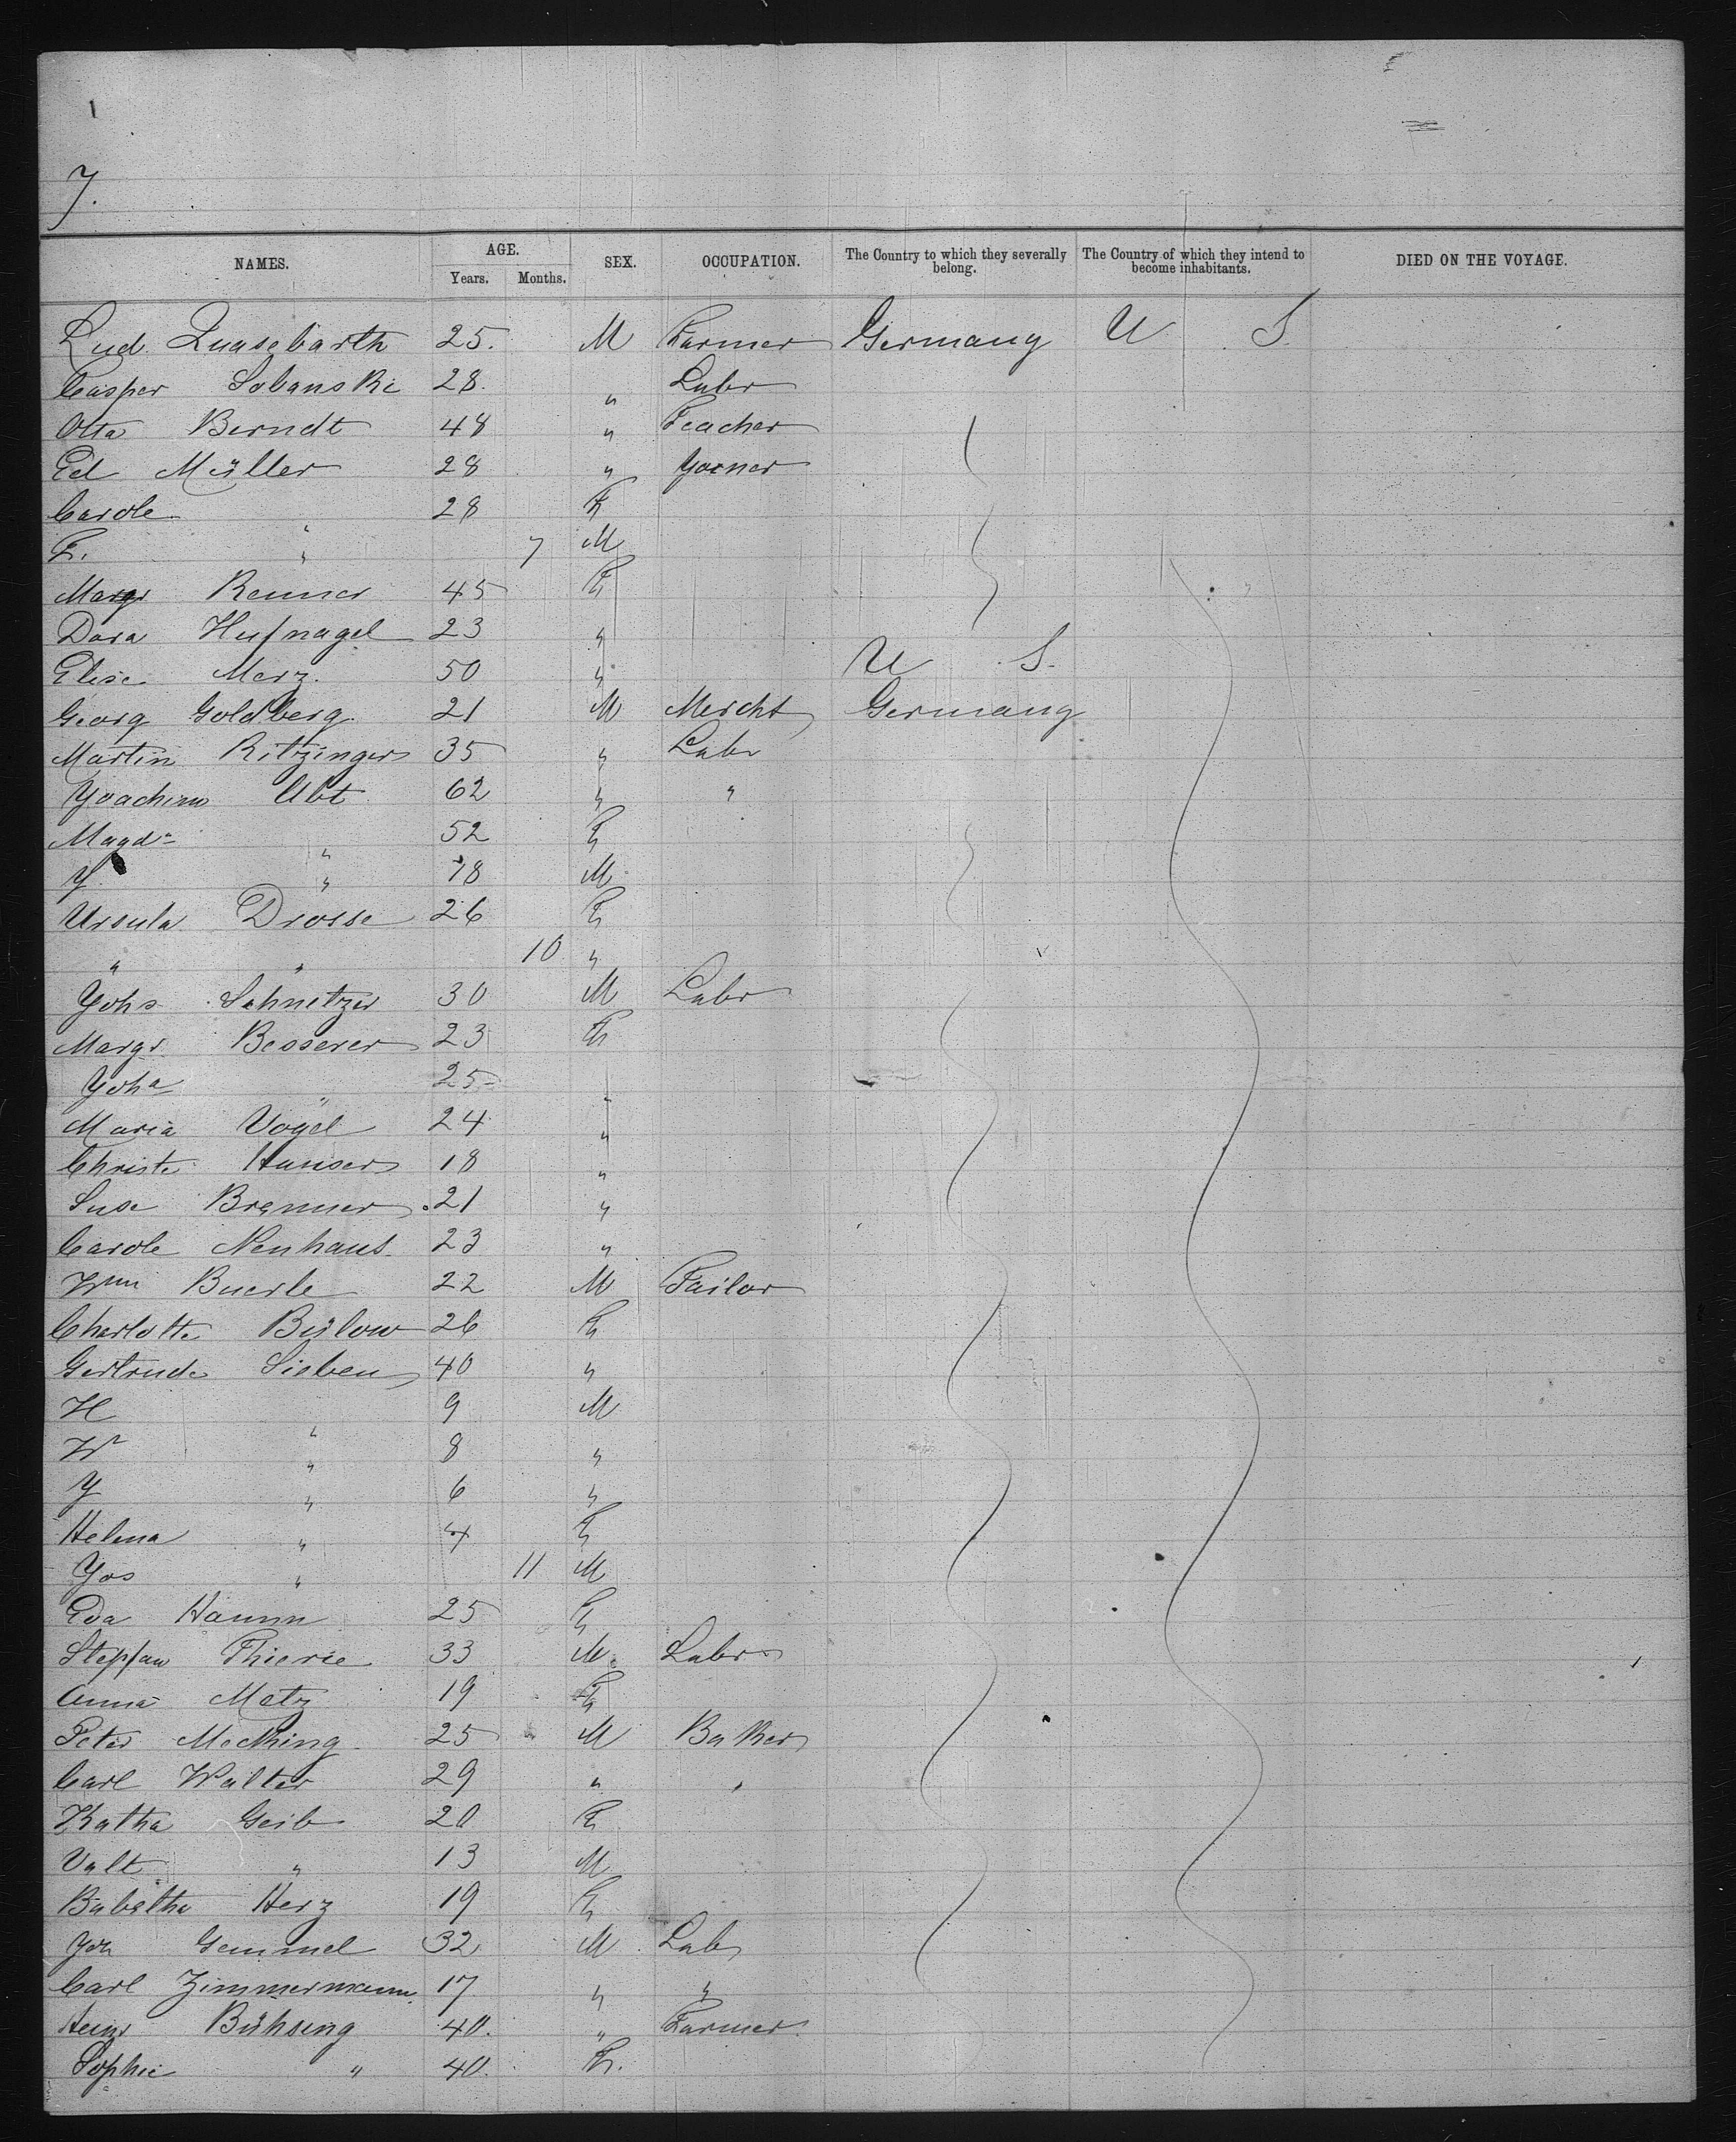 7.
NAMES. AGE. Years. Months. SEX. OCCUPATION. The Country to which they severally belong. The Country of which they intend to become inhabitants. DIED ON THE VOYAGE.
Lud. Quasebarth 25. M Farmer Germany U S
Casper Sobanski 28. " Labr
Otta Berndt 48 " Teacher
Ed Müller 28 " Yoiner
Carole 28 F
F. " 7 M
Margr Renner 45 F
Dora Hufnagel 23 "
Elise Merz. 50 " U S.
Georg Goldberg. 21 M Mercht Germany
Martin Ritzinger 35 " Labr
Yoachim Abt 62 " "
Magda " 52 F
Y " 18 M
Ursula Drosse 26 F
" " 10 "
Yohs Schnitzer 30 M Labr
Margr. Besserer 23 F
Yoha " 25 "
Maria Vogel 24 "
Christe Hauser 18 "
Suse Brenner 21 "
Carole Neuhaus 23 "
Wm Buerle 22 M Tailor
Charlotte Bülow 26 F
Gertrude Sieben 40 "
H " 9 M
W " 8 "
Y " 6 "
Helena " 4 F
Yos " 11 M
Eva Hamm 25 F
Stepfan Thierie 33 M Labr
Anna Metz 19 F
Peter Mecking 25 M Baker
Carl Walter 29 " "
Katha Geib 20 F
Valt " 13 M
Babetha Herz 19 F
Yoh Gemmel 32 M Lab
Carl Zimmermann 17 " "
Heinr Bühsing 40. " Farmer
Sophie " 40. F.